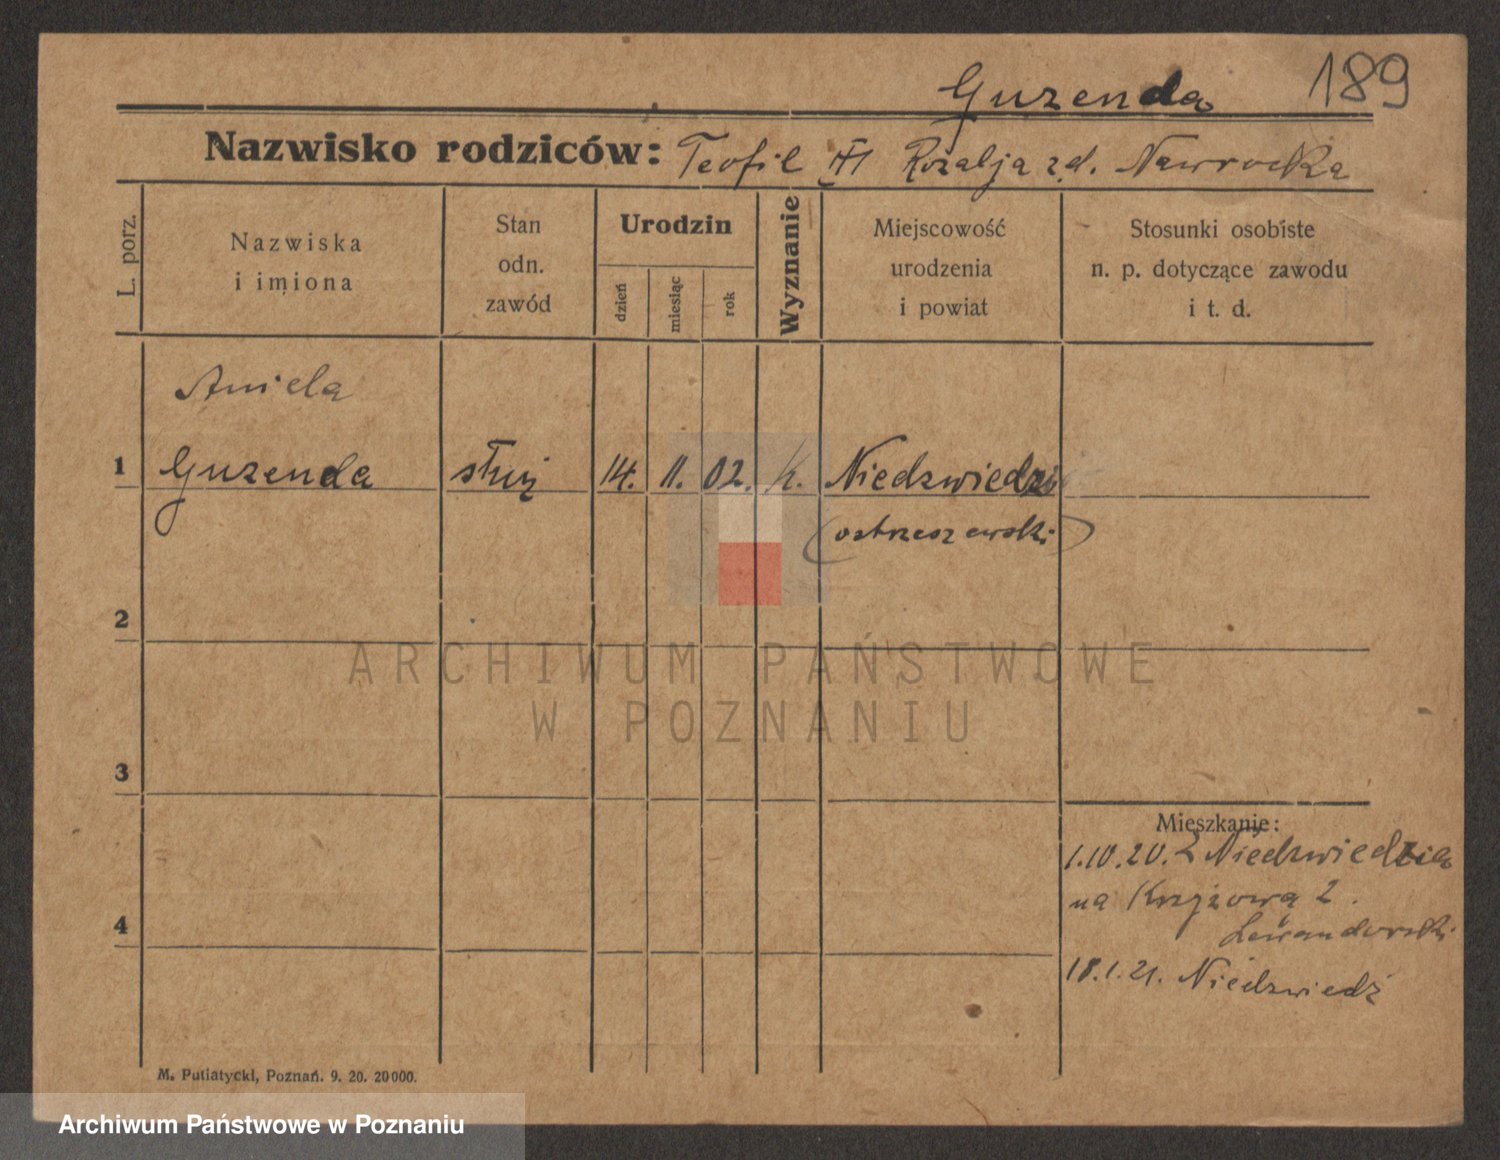 Guzenda 189
Nazwisko rodziców: Teofil Rozalja z d. Nawrocka
L. porz.
Nazwiska
i imiona
Stan
odn.
zawód
Urodzin
dzień
miesiąc
rok
Wyznanie
Miejscowość
urodzenia
i powiat
Stosunki osobiste
n. p. dotyczące zawodu
i t. d.
Aniela
1 Guzenda służ 14. 11. 02. k. Niedzwiedź
(ostrzeszewski)
2
ARCHIWUM PAŃSTWOWE
W POZNANIU
3
Mieszkanie:
1.10.20. z Niedzwiedzia
na Krzyżową 2.
4
Lewandowski
18.1.21. Niedzwiedź
M. Putiatycki, Poznań. 9. 20. 20000.
Archiwum Państwowe w Poznaniu